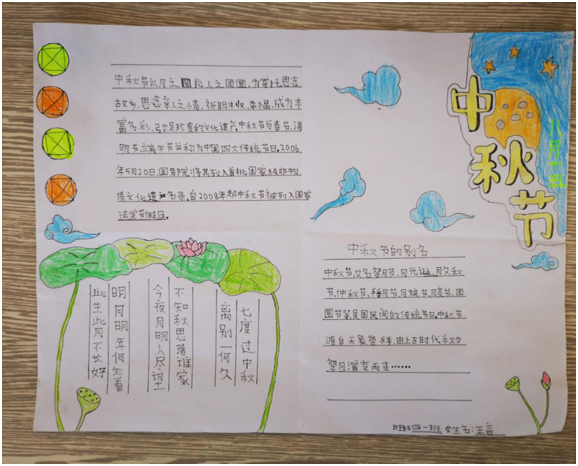 中秋节以月之圆兆人之团圆，为寄托思念
故乡，思念亲人之情，祈盼丰收、幸福，成为丰
富多彩、弥足珍贵的文化遗产。中秋节与春节、清
明节、端午节并称为中国四大传统节日。2006
年5月20日，国务院将其列入首批国家级非物
质文化遗产名录。自2008年起中秋节被列入国家
法定节假日。
中秋节
八月十五
七度过中秋
离别一何久
不知秋思落谁家
今夜月明人尽望
明月明年何处看
此生此月不长好
中秋节的别名
中秋节又名祭月节、月光诞、月夕、秋
节、仲秋节、拜月节、月娘节、月亮节、团
圆节等，是中国民间的传统节日。中秋节
源自天象崇拜，由上古时代秋夕
祭月演变而来……